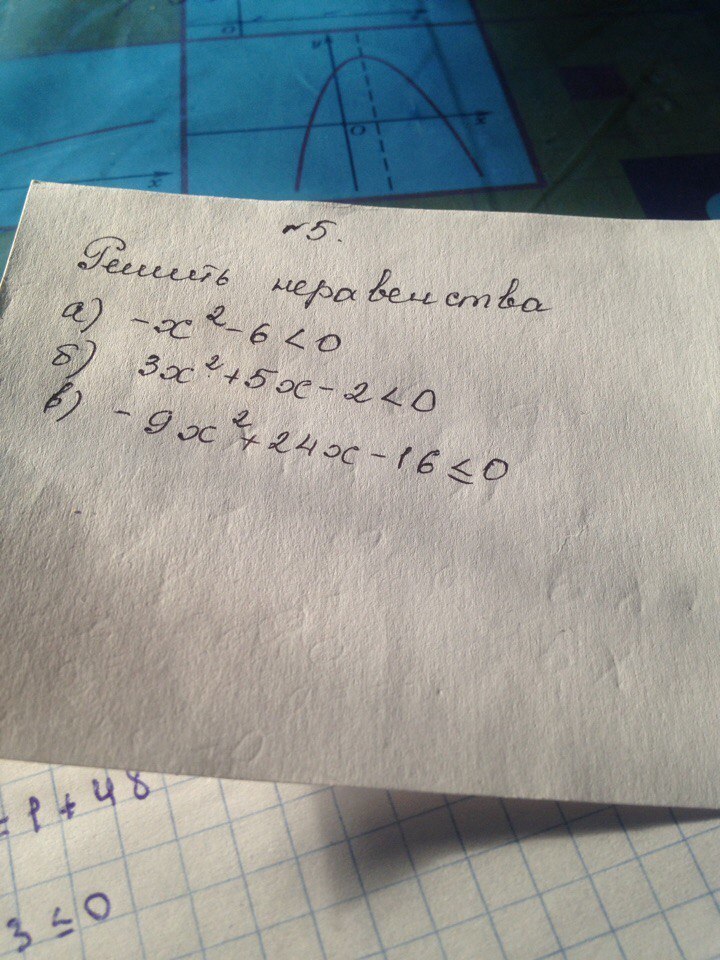 №5.
Решить неравенства
а) -x² - 6 < 0
б) 3x² + 5x - 2 < 0
в) -9x² + 24x - 16 ≤ 0
y
0
x
= 1 + 48
3 ≤ 0